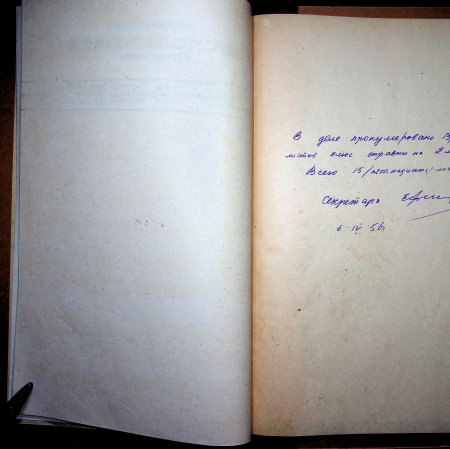 В деле пронумеровано 13
листов плюс справки на 2
Всего 15 /пятнадцать/
Секретарь
6-IV-56.